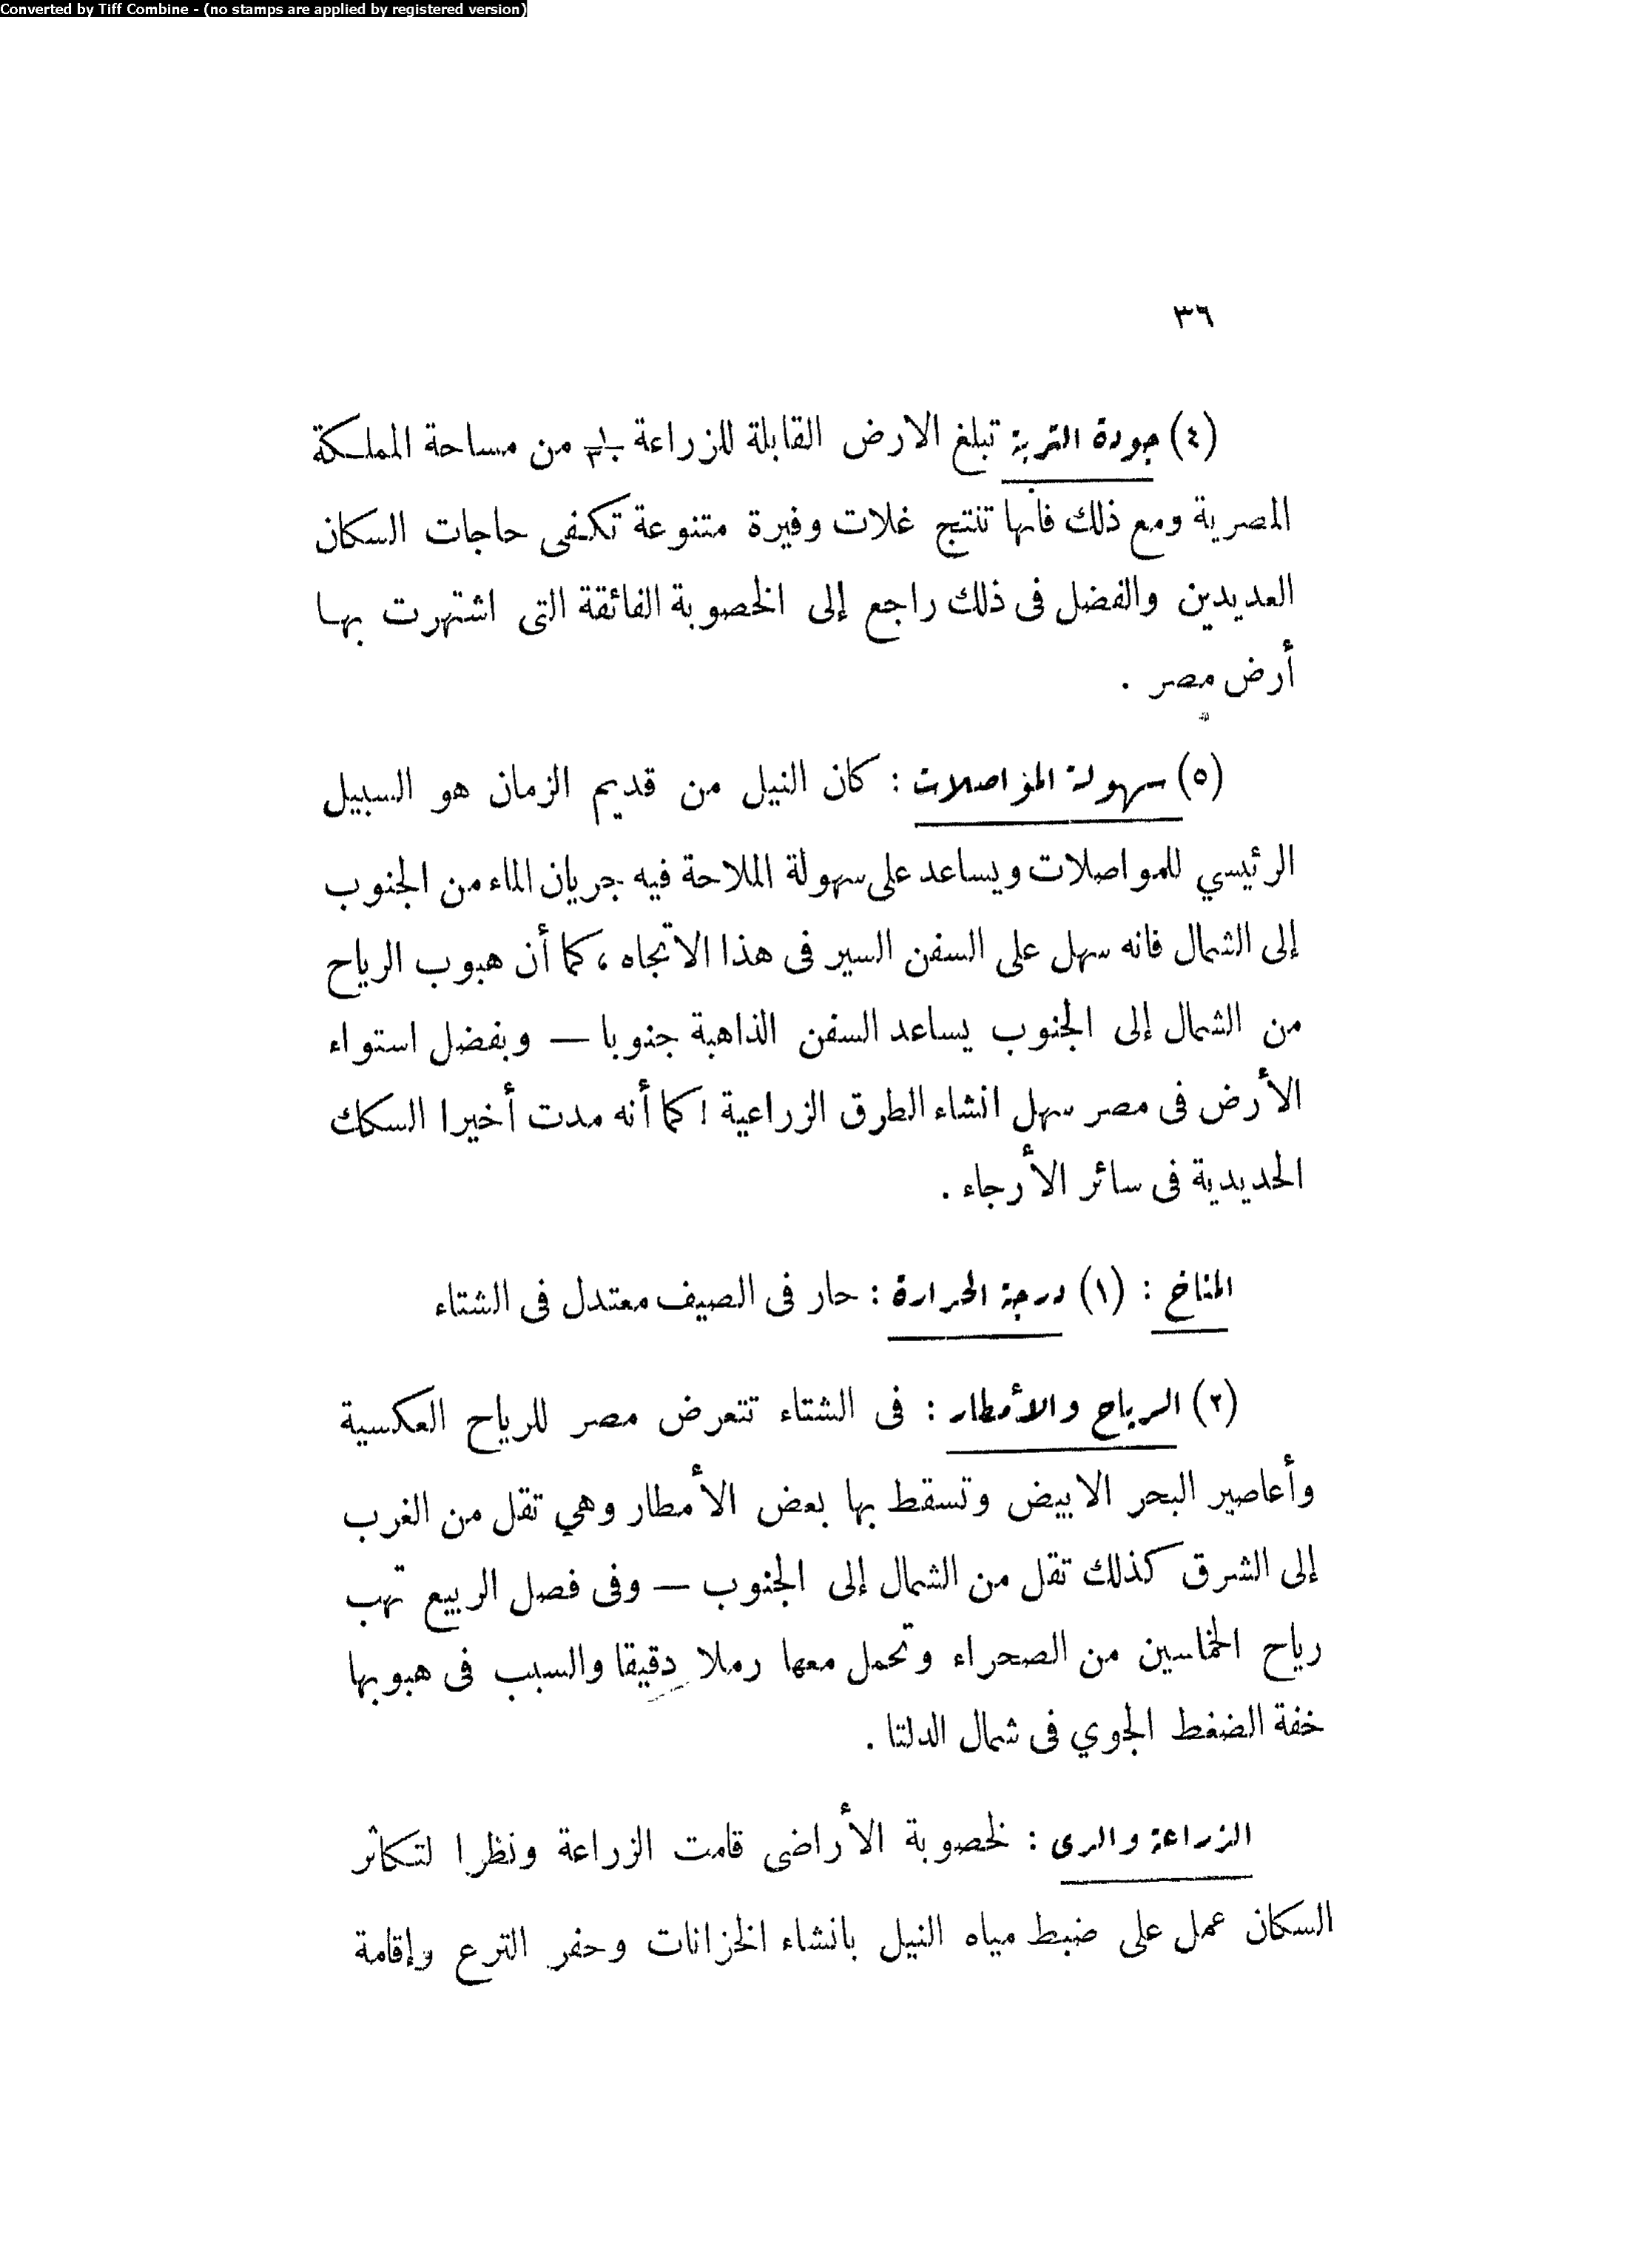 Converted by Tiff Combine - (no stamps are applied by registered version)
٣٦
(٤) جودة التربة تبلغ الارض القابلة للزراعة من مساحة المملكة
المصرية ومع ذلك فانها تنتج غلات وفيرة متنوعة تكفى حاجات السكان
العديدين والفضل فى ذلك راجع إلى الخصوبة الفائقة التى اشتهرت بها
أرض مصر .
(٥) سهولة المواصلات : كان النيل من قديم الزمان هو السبيل
الرئيسي للمواصلات ويساعد على سهولة الملاحة فيه جريان الماء من الجنوب
إلى الشمال فانه سهل على السفن السير فى هذا الاتجاه ، كما أن هبوب الرياح
من الشمال إلى الجنوب يساعد السفن الذاهبة جنوبا — وبفضل استواء
الأرض فى مصر سهل انشاء الطرق الزراعية ! كما أنه مدت أخيرا السكك
الحديدية فى سائر الأرجاء .
المناخ : (١) درجة الحرارة : حار فى الصيف معتدل فى الشتاء
(٢) الرياح والأمطار : فى الشتاء تتعرض مصر للرياح العكسية
وأعاصير البحر الابيض وتسقط بها بعض الأمطار وهي تقل من الغرب
إلى الشرق كذلك تقل من الشمال إلى الجنوب — وفى فصل الربيع تهب
رياح الخماسين من الصحراء وتحمل معها رملا دقيقا والسبب فى هبوبها
خفة الضغط الجوي فى شمال الدلتا .
الزراعة والرى : لخصوبة الأراضى قامت الزراعة ونظرا لتكاثر
السكان عمل على ضبط مياه النيل بانشاء الخزانات وحفر الترع وإقامة